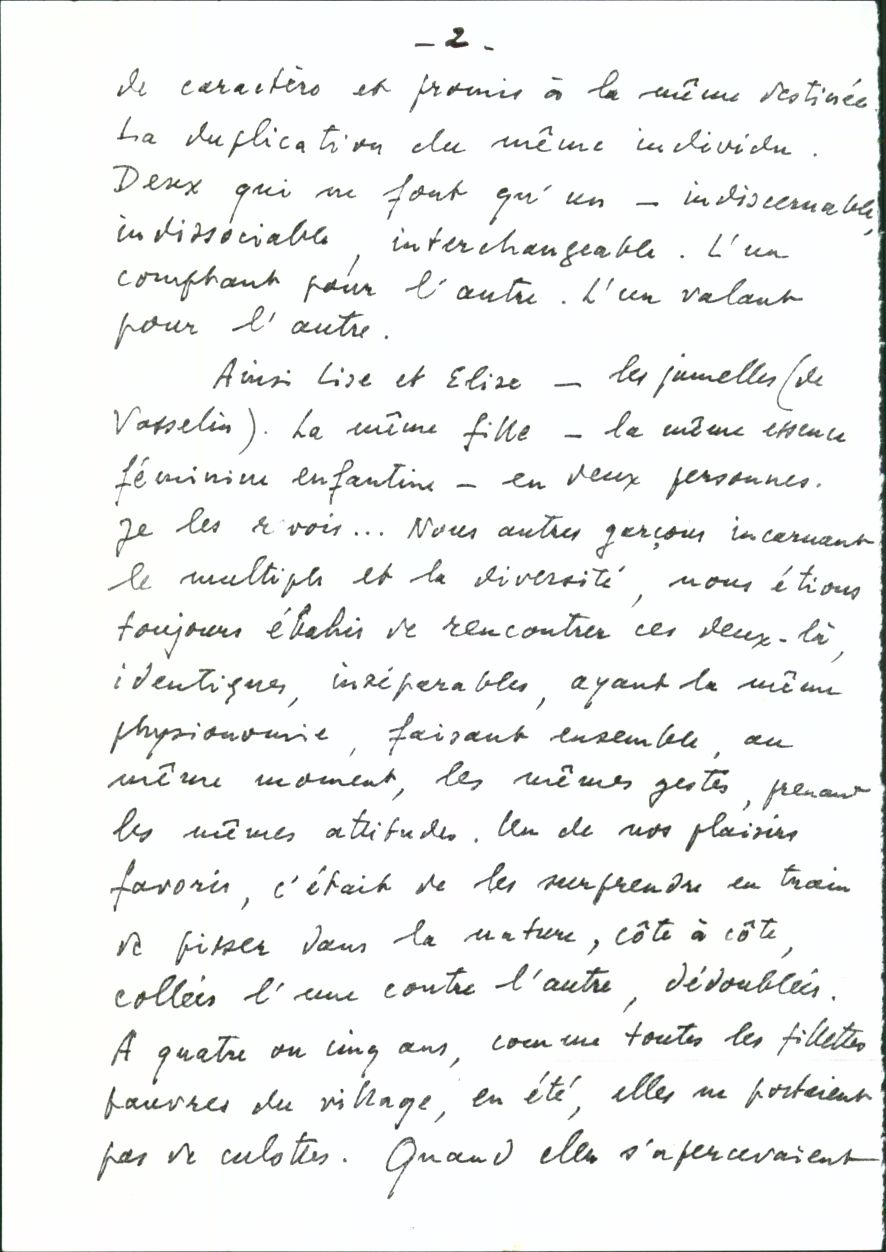 - 2 -
de caractère et promis à la même destinée.
La duplication du même individu.
Deux qui ne font qu'un — indiscernable,
indissociable, interchangeable. L'un
comptant pour l'autre. L'un valant
pour l'autre.
Ainsi Lise et Elise — les jumelles (de
Vasselin). La même fille — la même essence
féminine enfantine — en deux personnes.
Je les revois... Nous autres garçons incarnant
le multiple et la diversité, nous étions
toujours ébahis de rencontrer ces deux-là,
identiques, inséparables, ayant la même
physionomie, faisant ensemble, au
même moment, les mêmes gestes, prenant
les mêmes attitudes. Un de nos plaisirs
favoris, c'était de les surprendre en train
de pisser dans la nature, côte à côte,
collées l'une contre l'autre, dédoublées.
A quatre ou cinq ans, comme toutes les fillettes
pauvres du village, en été, elles ne portaient
pas de culottes. Quand elles s'apercevaient